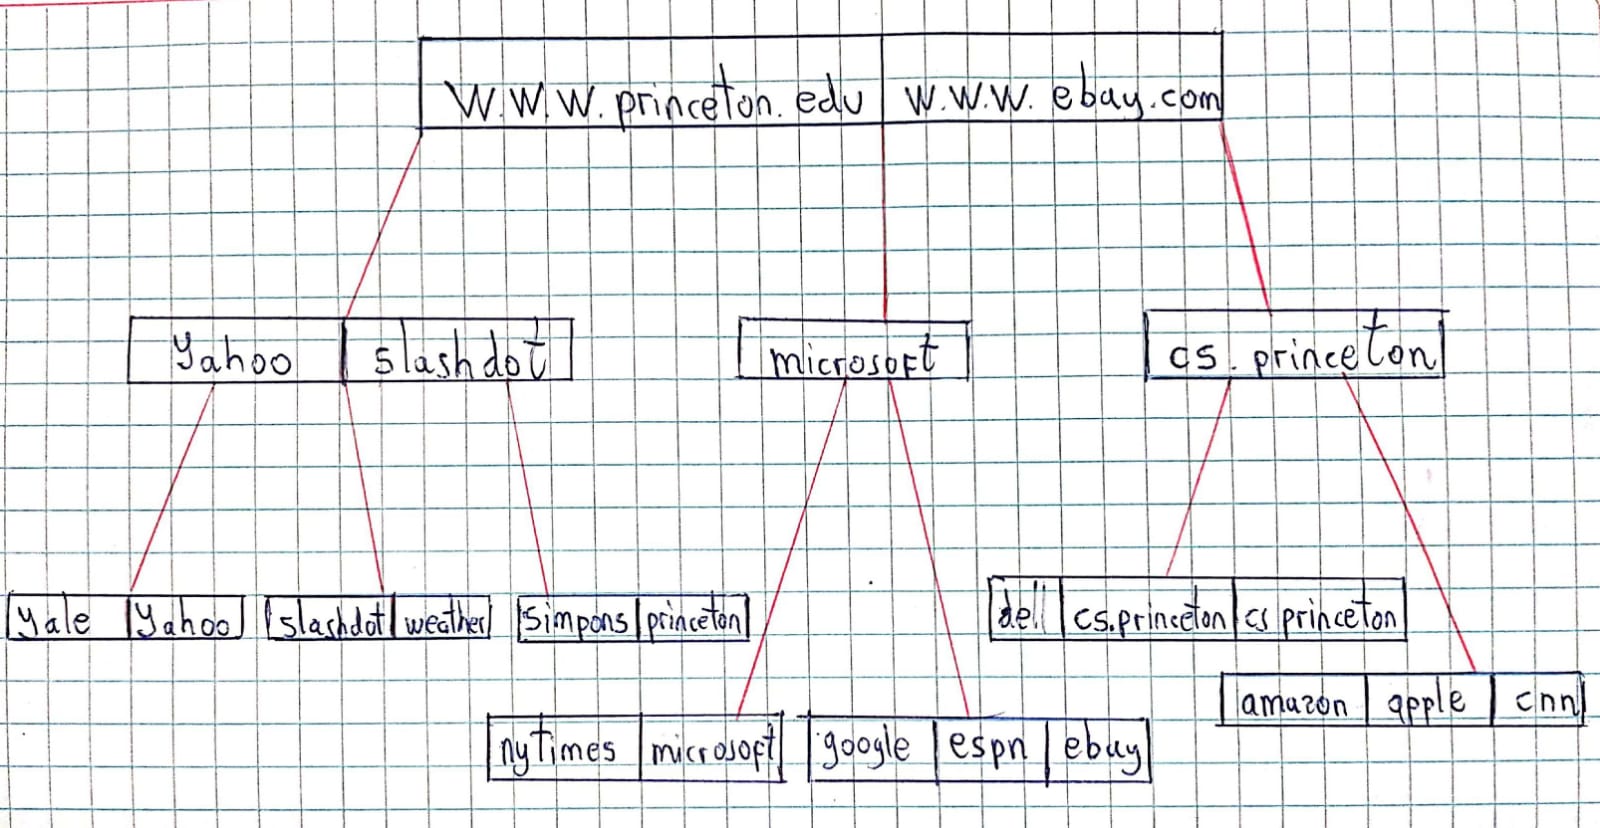 W.W.W. princeton. edu W.W.W. ebay.com
Yahoo slashdot microsoft cs. princeton
yale Yahoo slashdot weather simpons princeton dell cs.princeton cs princeton
amazon apple cnn
nytimes microsoft google espn ebuy